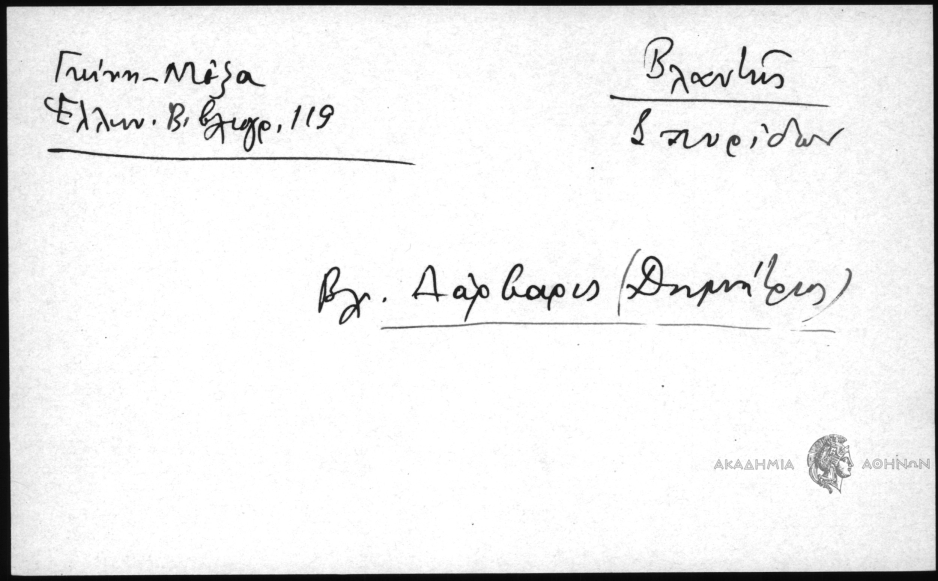 Γκίνη-Μέξα
Ελλην. Βιβλιογρ. 119
Βλαντής
Σπυρίδων
Βλ. Δάρβαρις (Δημήτριος)
ΑΚΑΔΗΜΙΑ ΑΘΗΝΩΝ